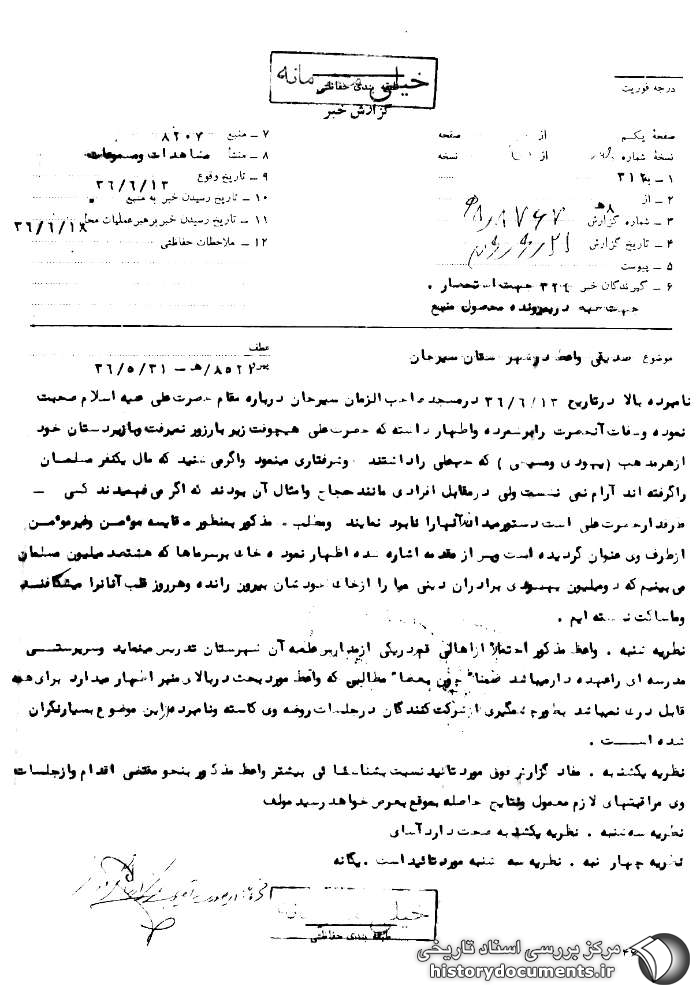 خیلی محرمانه
طبقه بندی حفاظتی
گزارش خبر
درجه فوریت
صفحهٔ یکم از صفحه
نسخهٔ شماره از نسخه
۱ ـ به ۳۱۲
۲ ـ از ۸ هـ
۳ ـ شماره گزارش
۴ ـ تاریخ گزارش
۵ ـ پیوست
۶ ـ گیرندگان خبر ۳۲۴ جهت استحضار .
جهت در پرونده محصول منبع
۷ ـ منبع ۸۲۰۷
۸ ـ منشأ مشاهدات و مسموعات
۹ ـ تاریخ وقوع ۳۶/۶/۱۳
۱۰ ـ تاریخ رسیدن خبر به منبع
۱۱ ـ تاریخ رسیدن خبر برهبر عملیات محل ۳۶/۶/۱۸
۱۲ ـ ملاحظات حفاظتی
موضوع صدیقی واعظ در شهرستان سیرجان
عطف
پیرو ۸۵۲۲/هـ ـ ۳۶/۵/۳۱
نامبرده بالا در تاریخ ۳۶/۶/۱۳ در مسجد صاحب الزمان سیرجان درباره مقام حضرت علی علیه اسلام صحبت
نموده وصفات آنحضرت رابرشمرده واظهار داشته که حضرت علی هیچوقت زیر بار زور نمیرفت وبازیردستان خود
ازهرمذهب (یهودی ومسیحی) که میداشتند خوشرفتاری مینمود واگر می شنید که مال یکنفر مسلمان
راگرفته اند آرام نمی نشست ولی درمقابل افرادی مانند حجاج وامثال آن بودند که اگر می فهمیدند کسی ـ
طرفدار حضرت علی است دستور میداد آنها را نابود نمایند ومطلب . مذکور بمنظور مقایسه مومن وغیر مومن
ازطرف وی عنوان گردیده است وپس از مقدمه اشاره شده اظهار نموده خاک برسرما ها که هشتصد ملیون مسلمان
می بینیم که دوملیون یهودی برادران دینی ما را ازخاک خودشان بیرون رانده وهرروز قلب آنانرا میشکافند
وما ساکت نشسته ایم .
نظریه شنبه . واعظ مذکور احتمالا ازاهالی قم دریکی ازمدارس طلبه آن شهرستان تدریس مینماید وسرپرستی
مدرسه ای رابعهده دارمیباشد ضمنا" چون بعضا" مطالبی که واعظ مورد بحث دربالای منبر اظهار میدارد برای همه
قابل درک نمیباشد بطورچشمگیری ازشرکت کنندگان درجلسات روضه وی کاسته ونامبرده ازاین موضوع بسیارنگران
شده است .
نظریه یکشنبه . مفاد گزارش فوق مورد تائید نسبت بشناسائی بیشتر واعظ مذکور بنحو مقتضی اقدام وازجلسات
وی مراقبتهای لازم معمول ونتایج حاصله بموقع بعرض خواهد رسید مولف
نظریه سه شنبه . نظریه یکشنبه صحت دارد آسای
نظریه چهارشنبه . نظریه سه شنبه مورد تائید است . یگانه
خیلی محرمانه
طبقه بندی حفاظتی
مرکز بررسی اسناد تاریخی
historydocuments.ir